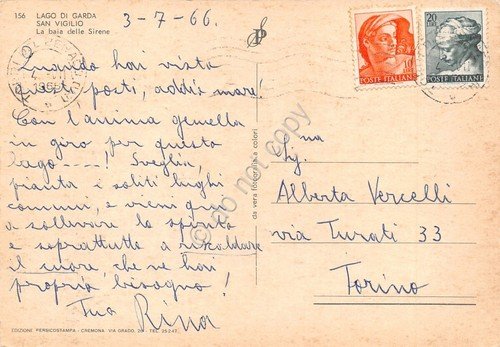 156 LAGO DI GARDA
SAN VIGILIO
La baia delle Sirene
3-7-66.
Quando hai visto
questi posti, addio mare!
Con l'anima gemella
in giro per questo
lago ----! Sveglia,
pianta i soliti luoghi
comuni, e vieni qui
a sollevare lo spirito
e soprattutto a riscaldare
il cuore, che ne hai
proprio bisogno!
Tua Rina
da vera fotografia a colori
10
POSTE ITALIANE
20
POSTE ITALIANE
Sig.na
Alberta Vercelli
via Turati 33
Torino
EDIZIONE PERSICOSTAMPA - CREMONA VIA GRADO, 20 - TEL. 25-2-47
do not copy